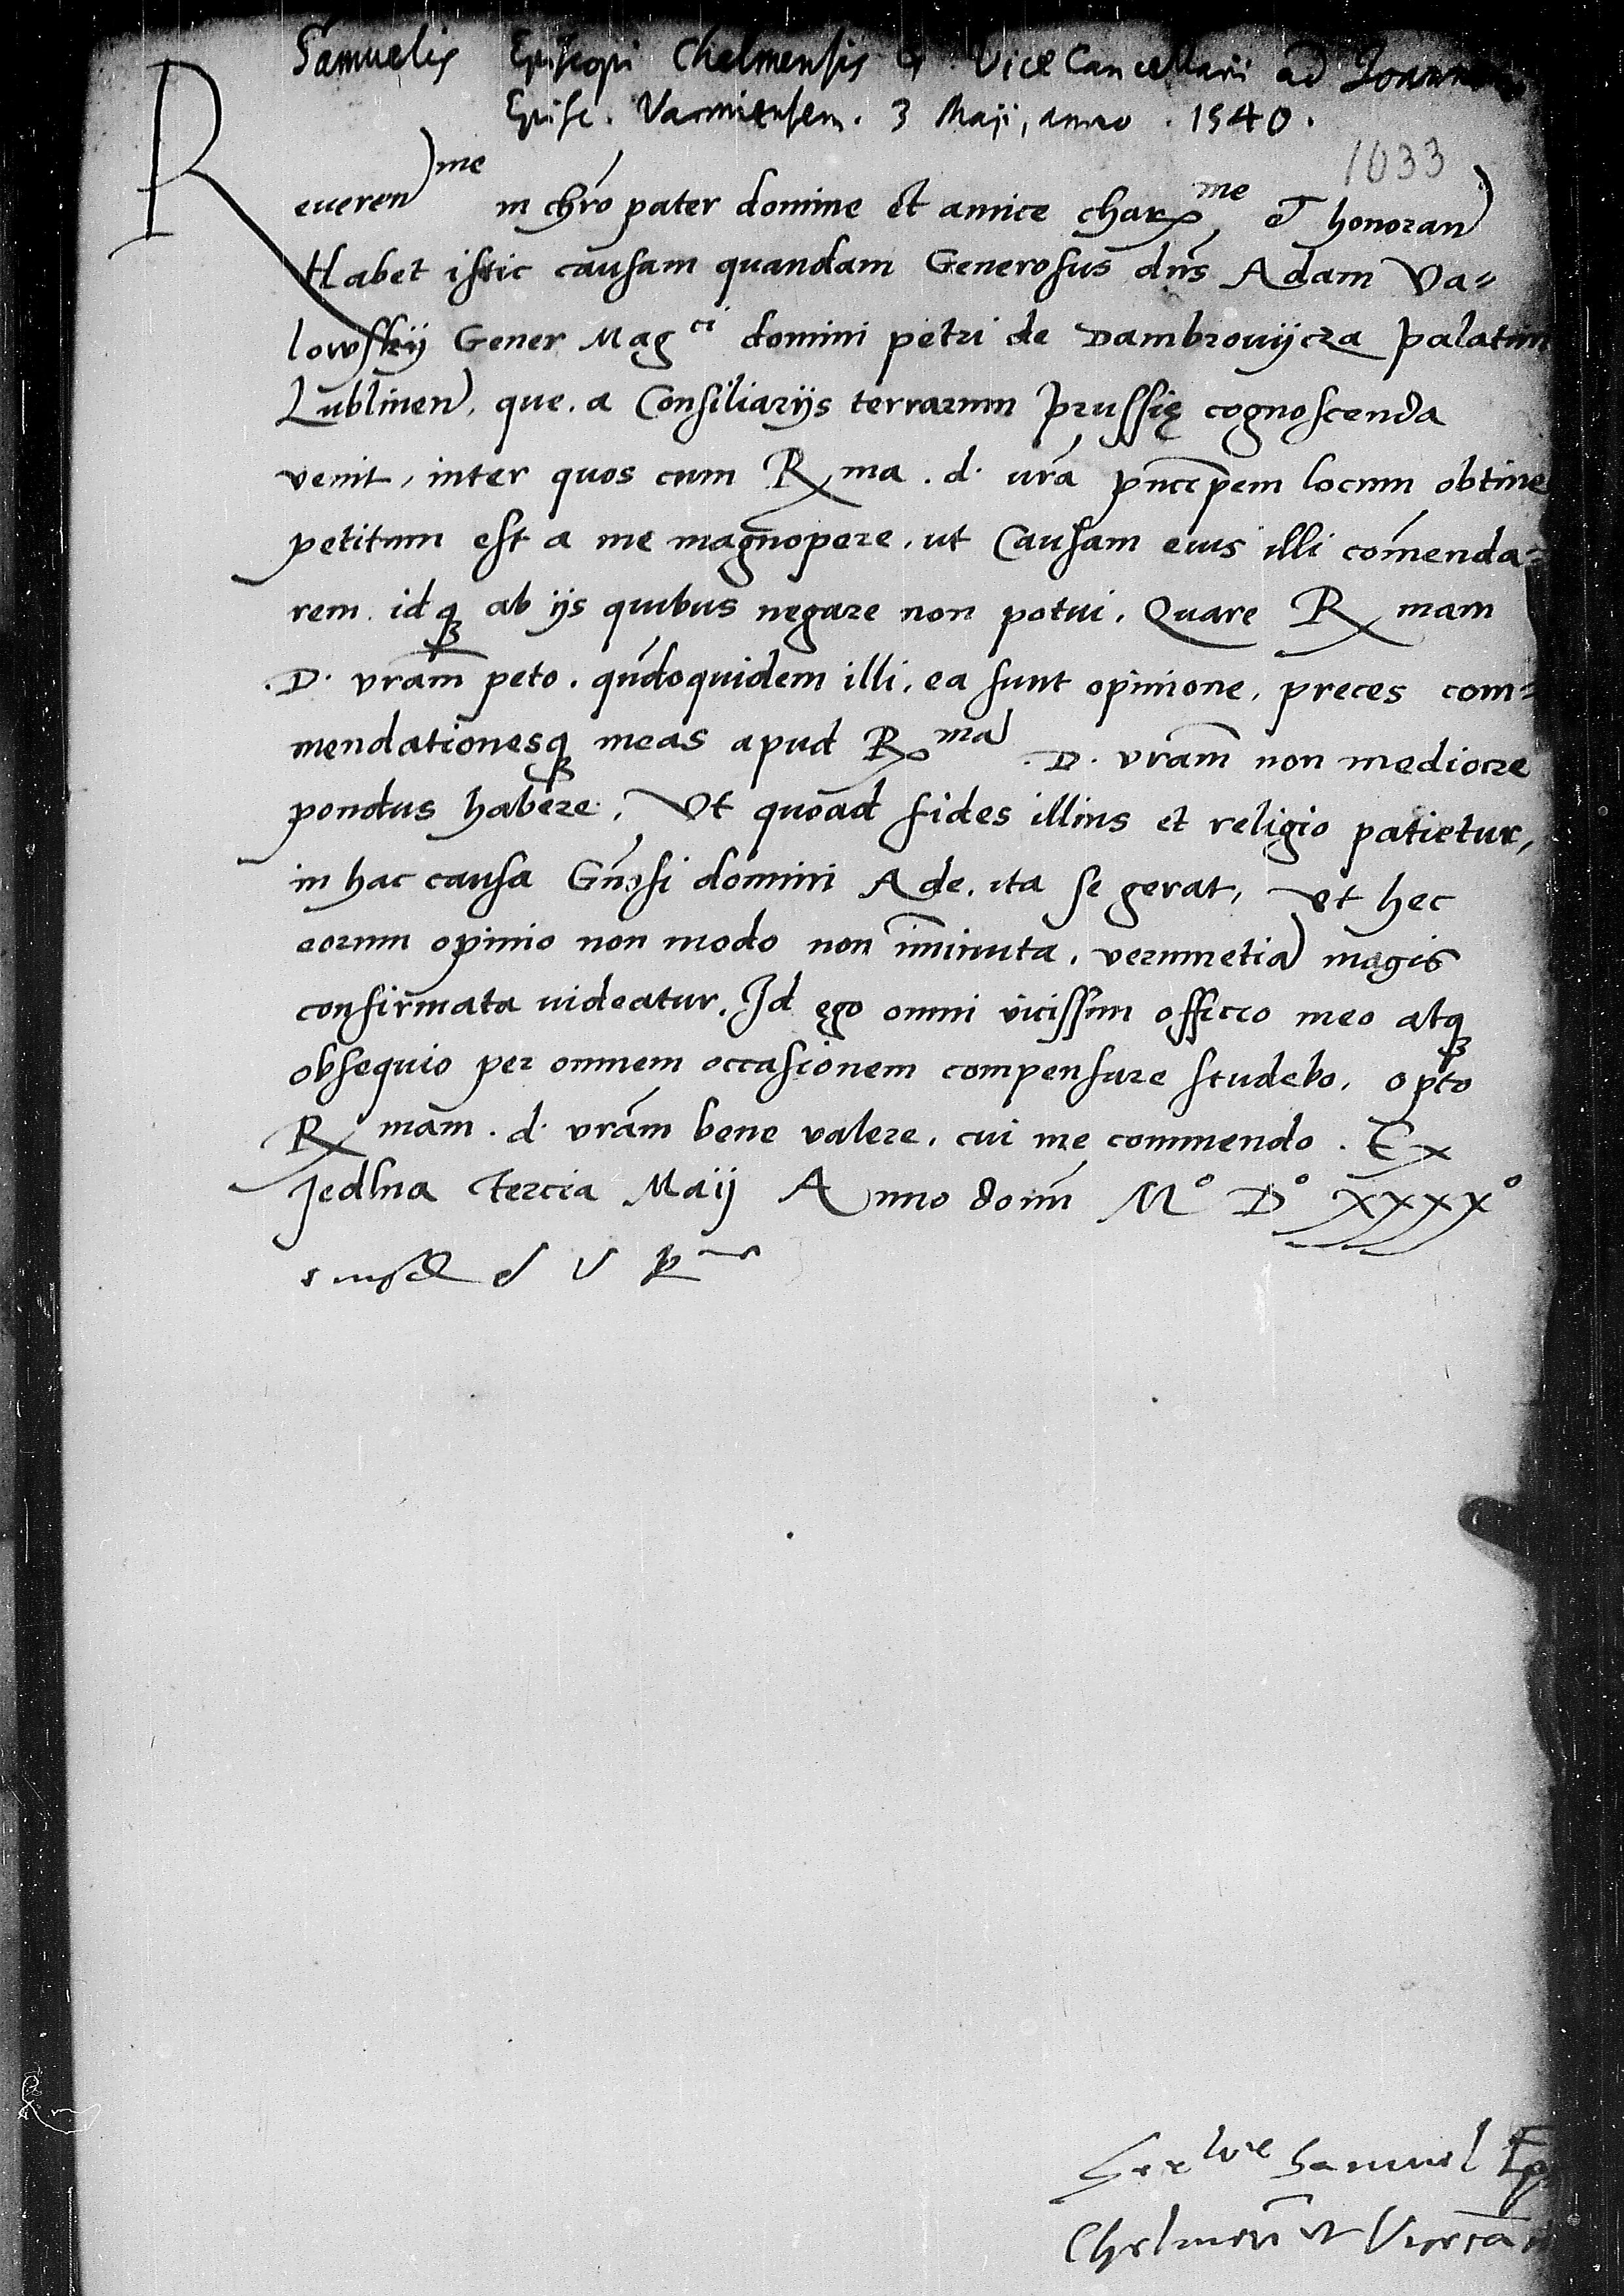 Samuelis Episcopi Chelmensis & Vice Cancellarii ad Joannem
Episc. Varmiensem. 3 Maji, anno . 1540.
1033
Reueren)me in chrō pater domine et amice charme et honoran)
Habet istic causam quandam Generosus dns Adam Va-
lowskij Gener Magci domini petri de Dambrowijcza palatini
Lublinen). que. a Consiliarijs terrarum prussię cognoscenda
venit, inter quos cum R ma . d. urā pncipem locum obtine
petitum est a me magnopere, ut causam eius illi cōmenda-
rem. idq ab ijs quibus negare non potui. Quare R mam
.D. vram peto. qndoquidem illi, ea sunt opinione, preces com-
mendationesq meas apud R ma) .D. vram non mediocre
pondus habere. Vt quoad fides illius et religio patietur,
in hac causa Gnosi domini Ade. ita se gerat, ut hec
eorum opinio non modo non īminuta, verumetia) magis
confirmata uideatur. Id ego omni vicissim officio meo atq
obsequio per omnem occasionem compensare studebo. opto
R mam . d. vram bene valere, cui me commendo. Ex
Jedlna tercia Maij Anno domi Mo Do xxxxo
eiusd d v R
Samuel Ep
Chelmen et Viceca